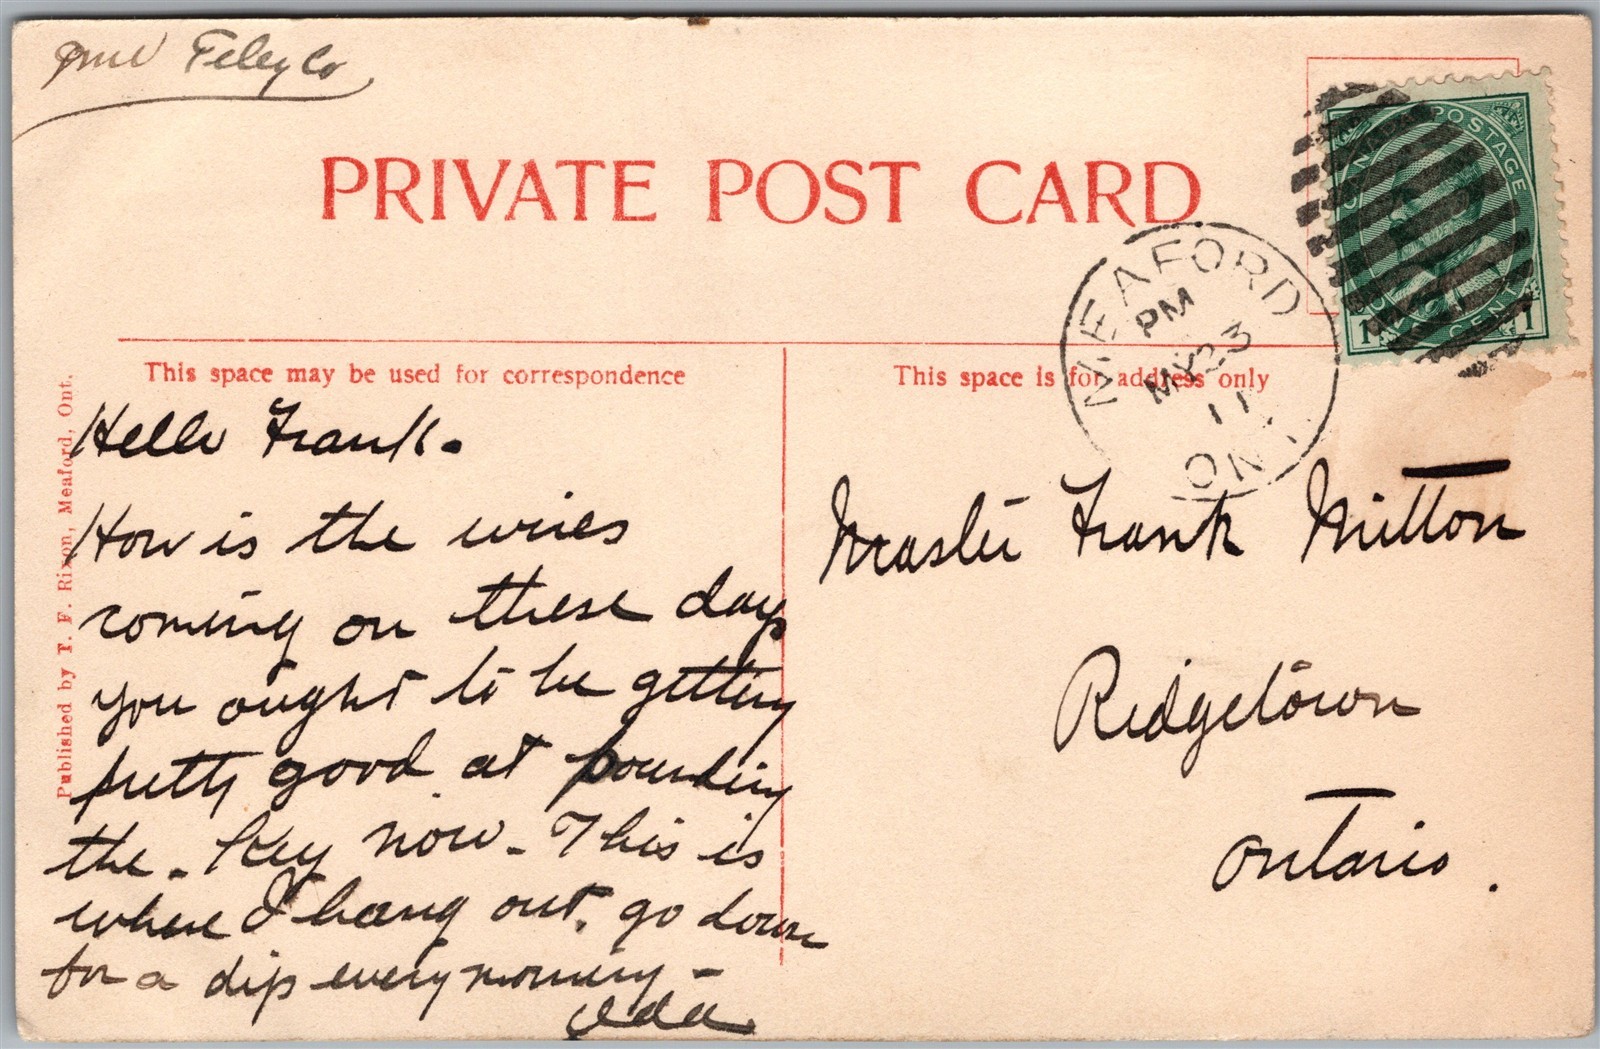 PRIVATE POST CARD
CANADA POSTAGE
1 CENT 1
MEAFORD
PM
MY 23
11
ONT
This space may be used for correspondence
This space is for address only
Published by T. F. Rixon, Meaford, Ont.
Hello Frank.
How is the wires
coming on these days
you ought to be getting
pretty good at pounding
the. key now. This is
where I hang out. go down
for a dip every morning -
Ida
Master Frank Mitton
Ridgetown
Ontario.